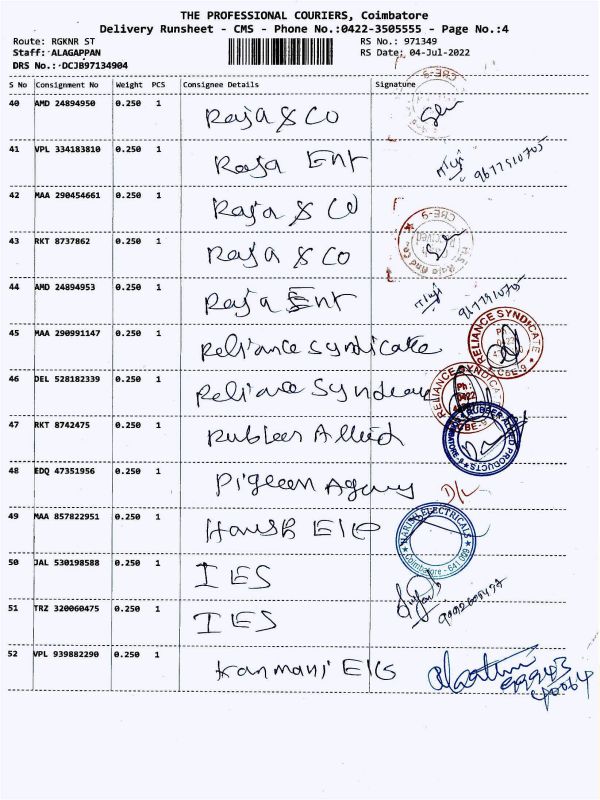 THE PROFESSIONAL COURIERS, Coimbatore
Delivery Runsheet - CMS - Phone No.:0422-3505555 - Page No.:4
Route: RGKNR ST RS No.: 971349
Staff: ALAGAPPAN RS Date: 04-Jul-2022
DRS No.: DCJB97134904
S No Consignment No Weight PCS Consignee Details Signature
40 AMD 24894950 0.250 1 Raja & Co
41 VPL 334183810 0.250 1 Raja Ent 9677910705
42 MAA 290454661 0.250 1 Raja & Co
43 RKT 8737862 0.250 1 Raja & Co
CBE-9
44 AMD 24894953 0.250 1 Raja Ent
45 MAA 290991147 0.250 1 Reliance Syndicate
RELIANCE SYNDICATE
Ph : 0422
CBE-9
46 DEL 528182339 0.250 1 Reliance
RELIANCE SYNDICATE
Ph : 0422
CBE-9
47 RKT 8742475 0.250 1 Rubber Allied
RUBBER ALLIED PRODUCTS
48 EDQ 47351956 0.250 1 Pigeon Agency D/L
49 MAA 857822951 0.250 1
ELECTRICALS
Coimbatore - 641 009
50 JAL 530198588 0.250 1 IES
51 TRZ 320060475 0.250 1 IES
52 VPL 939882290 0.250 1 Kanmani